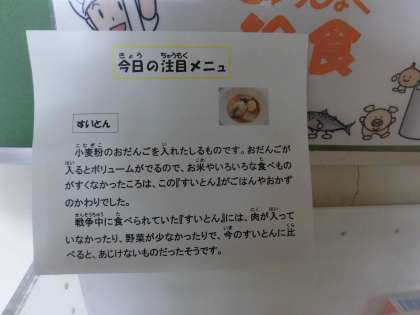 給食
今日の注目メニュー
すいとん
小麦粉のおだんごを入れたしるものです。おだんごが
入るとボリュームがでるので、お米やいろいろな食べもの
がすくなかったころは、この『すいとん』がごはんやおかず
のかわりでした。
戦争中に食べられていた『すいとん』には、肉が入って
いなかったり、野菜が少なかったりで、今のすいとんに比
べると、あじけないものだったそうです。